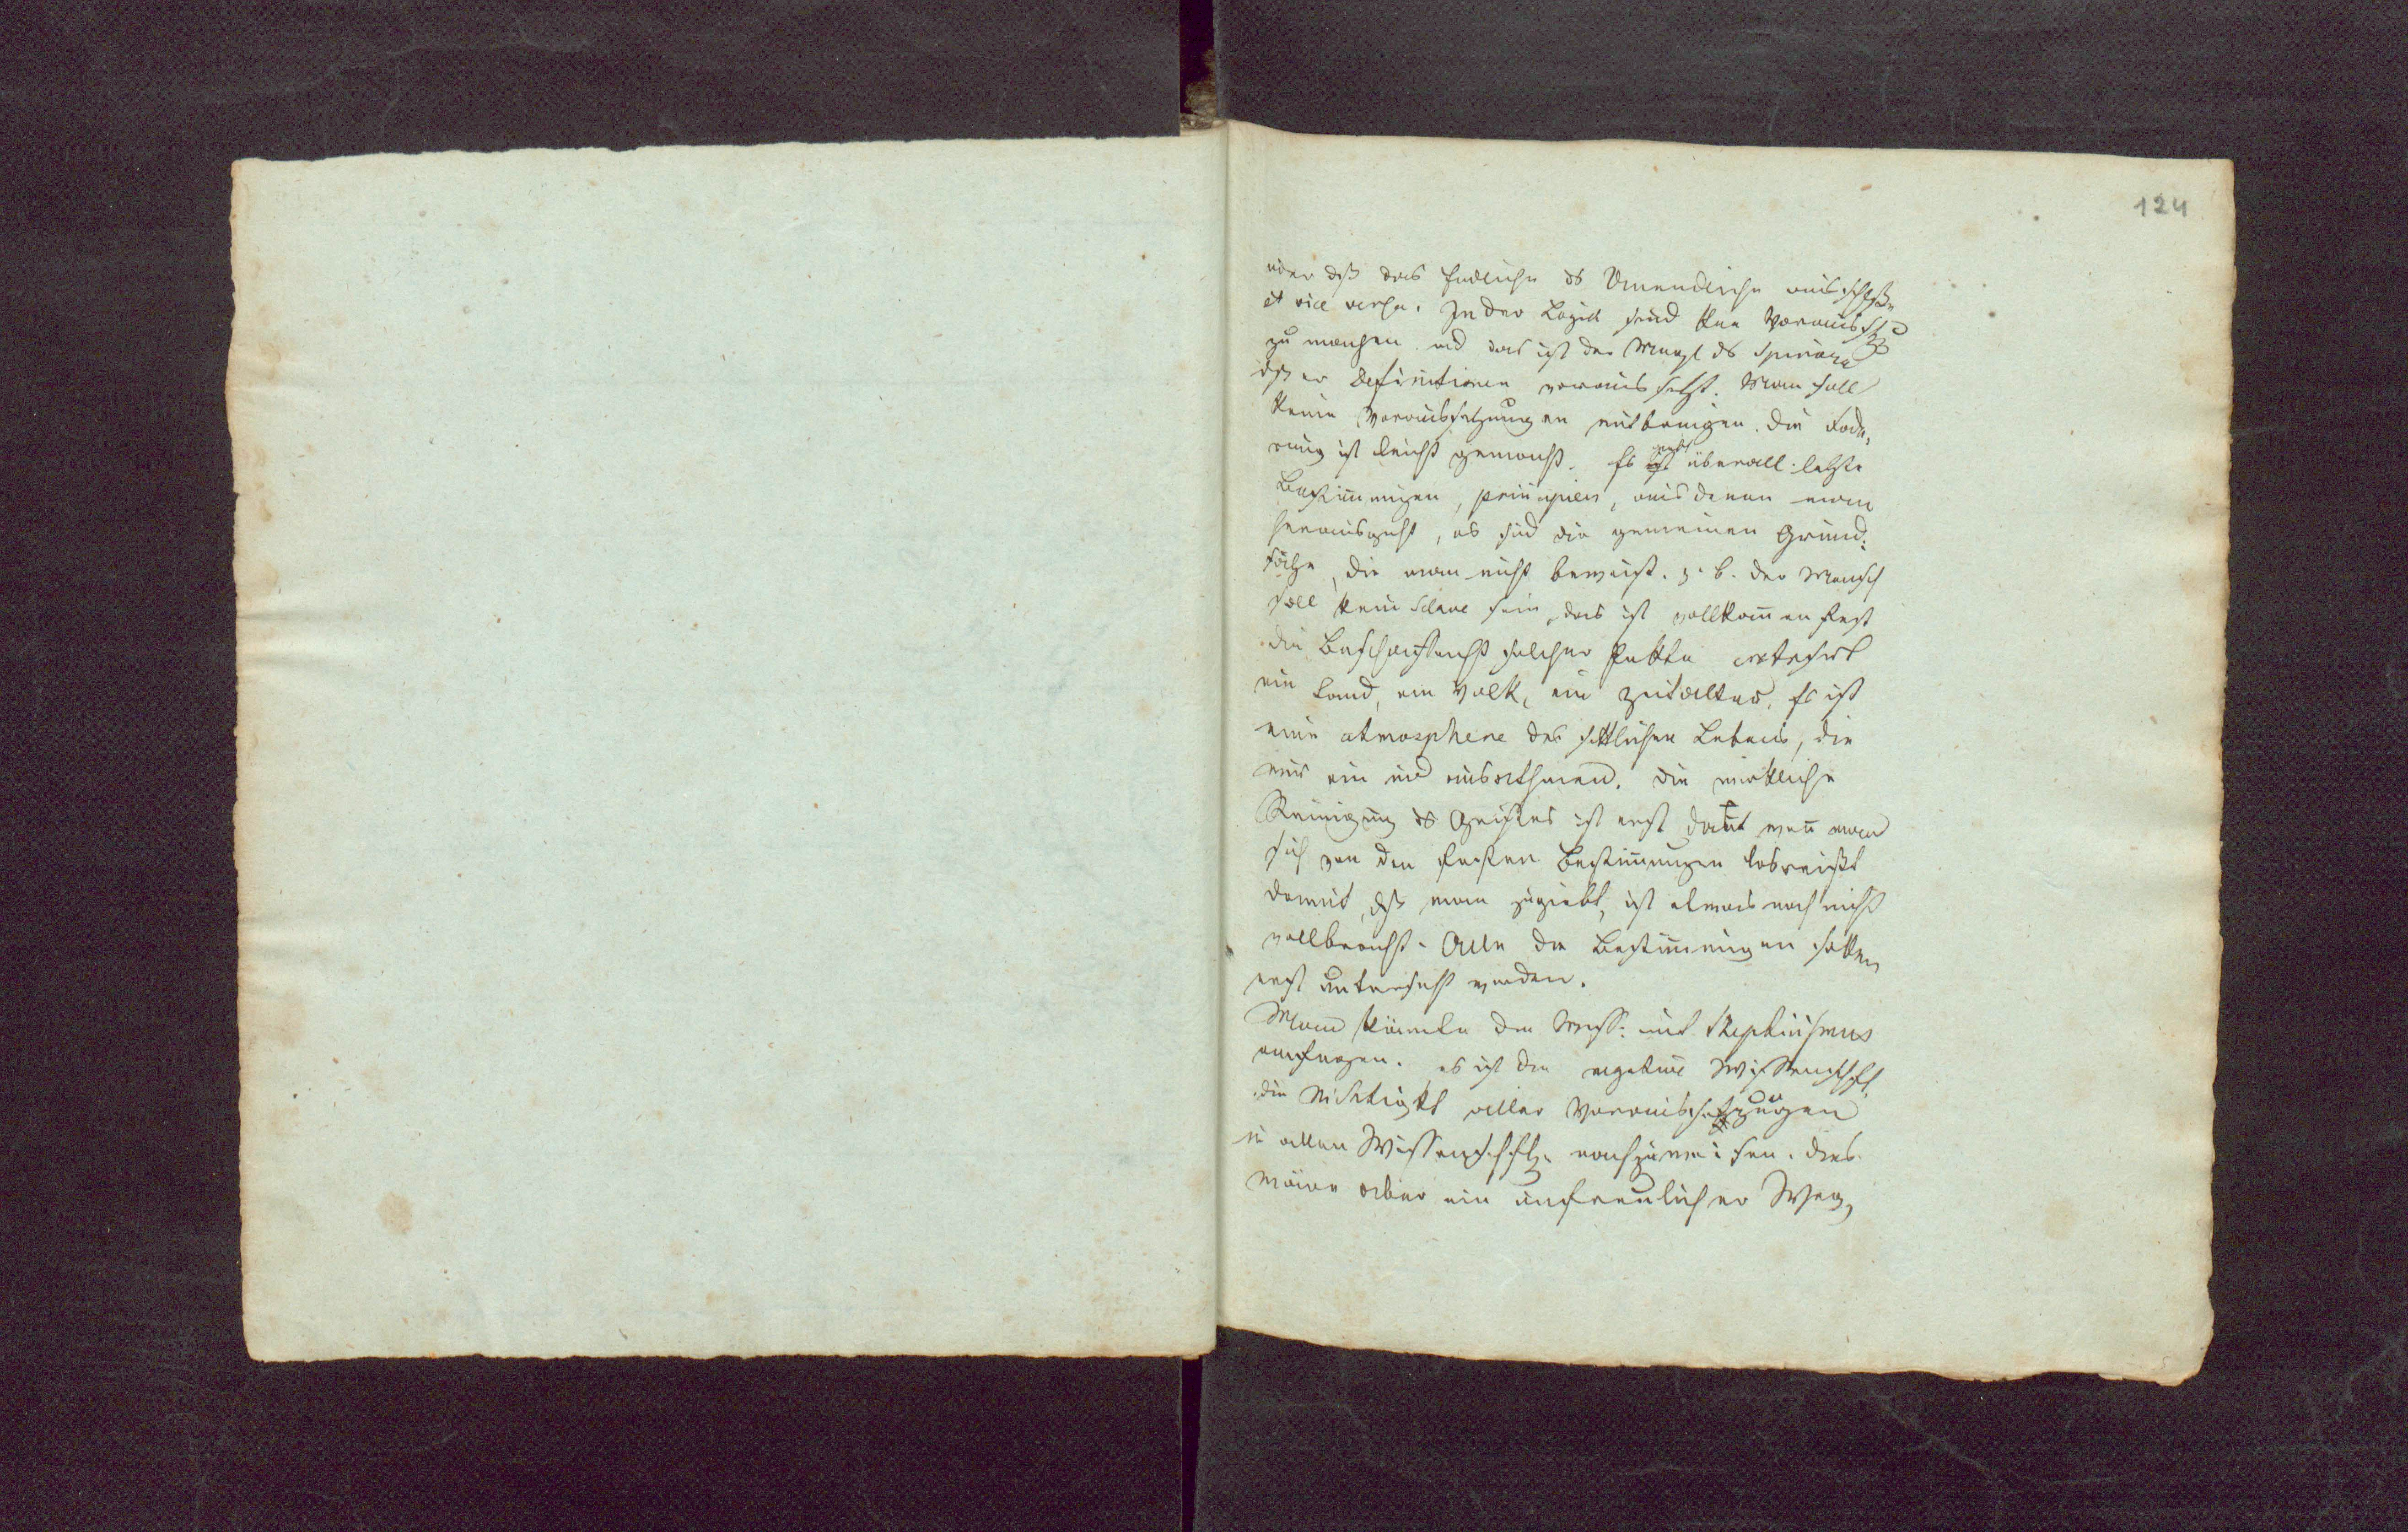 124
oder dß das Endliche ds Unendliche ausschließe
et vice versa. In der Logik sind kne Voraussetzg
zu machen und das ist der Mangl ds Spinoza
dß er Definitionen voraus setzt. Man soll
keine Voraussetzungen mitbringen. Die Fode,
rung ist leicht gemacht. Es giebt überall letzte
Bestimungen, principien, aus denen man
herausgeht, es sind die gemeinen Grund:
sätze, die man nicht beweist. z. b. der Mensch
soll kein Sclave sein, das ist vollkomen fest
die Beschaffenheit solcher Pukte
ein Land, ein Volk, ein Zeitalter. Es ist
eine atmosphere des sittlichen Lebens, die
wir ein und ausathmen. Die wirkliche
Reinigung ds Geistes ist erst damit wen man
sich von den festen Bestimungen losreißt
damit, dß man zugiebt, ist etwas noch nicht
vollbracht. Alle die Bestimungen sollten
erst untersucht werden.
Man könnte die Wiss: mit Skepticismus
anfangen. es ist die negative Wissenschft,
die Nichtigkt aller Voraussetzungen
in allen Wissenschftn nachzuweisen. Dies
wäre aber ein unfreulicher Weg,